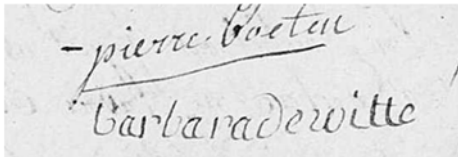 pierre boeten
barbaradewitte